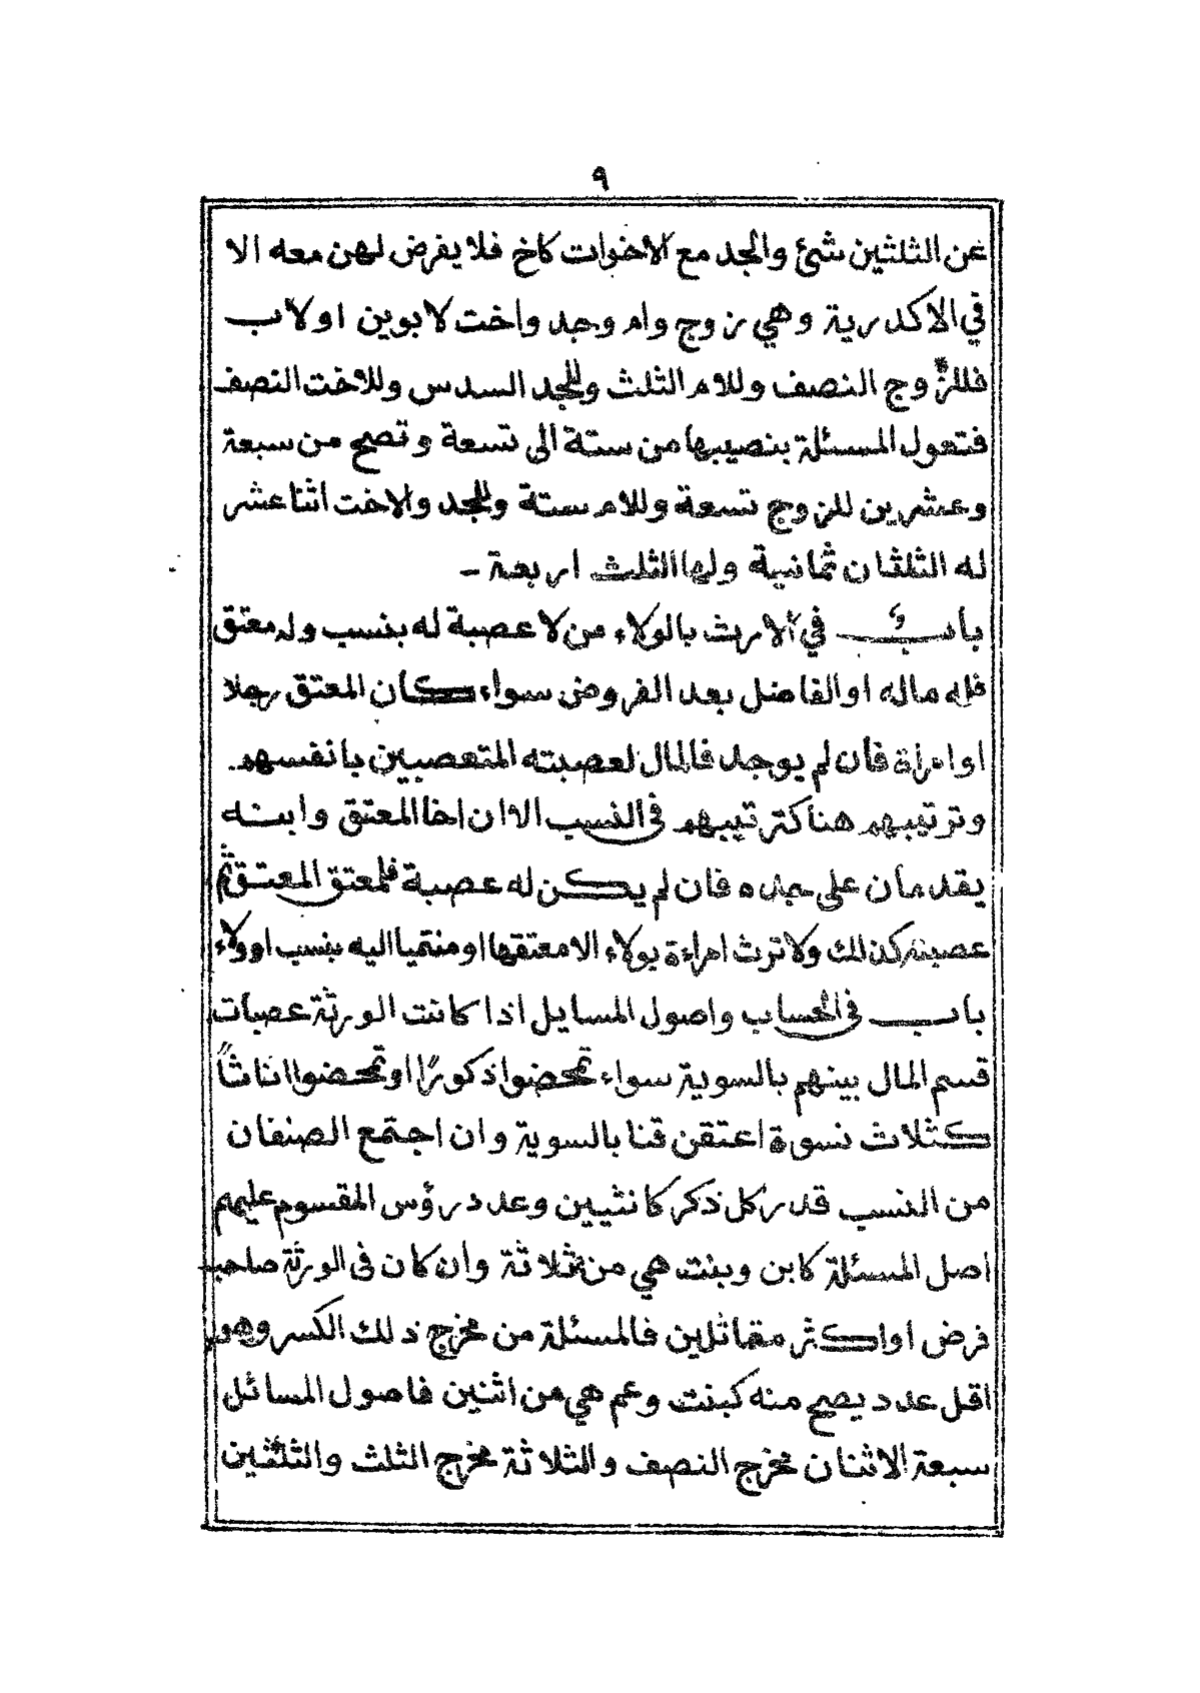 ٩
عن الثلثين شئ والجد مع الاخوات كاخ فلا يفرض لهن معه الا
في الاكدرية وهي زوج وام وجد واخت لابوين اولاب
فللزوج النصف وللام الثلث وللجد السدس وللاخت النصف
فتعول المسئلة بنصيبها من ستة الى تسعة وتصح من سبعة
وعشرين للزوج تسعة وللام ستة وللجد والاخت اثنا عشر
له الثلثان ثمانية ولها الثلث اربعة -
باب في الارث بالولاء من لا عصبة له بنسب وله معتق
فله ماله او الفاضل بعد الفروض سواء كان المعتق رجلا
او امراة فان لم يوجد فالمال لعصبته المتعصبين بانفسهم
وترتيبهم هنا كترتيبهم فى النسب الا ان اخا المعتق وابنه
يقدمان على جده فان لم يكن له عصبة فلمعتق المعتق ثم
عصبته كذلك ولا ترث امراءة بولاء الا معتقها او منتميا اليه بنسب او ولاء
باب فى الحساب واصول المسايل اذا كانت الورثة عصبات
قسم المال بينهم بالسوية سواء تمحضوا ذكورًا او تمحضوا اناثاً
كثلاث نسوة اعتقن قنا بالسوية وان اجتمع الصنفان
من النسب قدر كل ذكر كانثيين وعدد رؤس المقسوم عليهم
اصل المسئلة كابن وبنت هي من ثلاثة وان كان فى الورثة صاحب
فرض او اكثر مقاثلين فالمسئلة من مخرج ذلك الكسر وهو
اقل عدد يصح منه كبنت وعم هي من اثنين فاصول المسائل
سبعة الاثنان مخرج النصف والثلاثة مخرج الثلث والثلثين